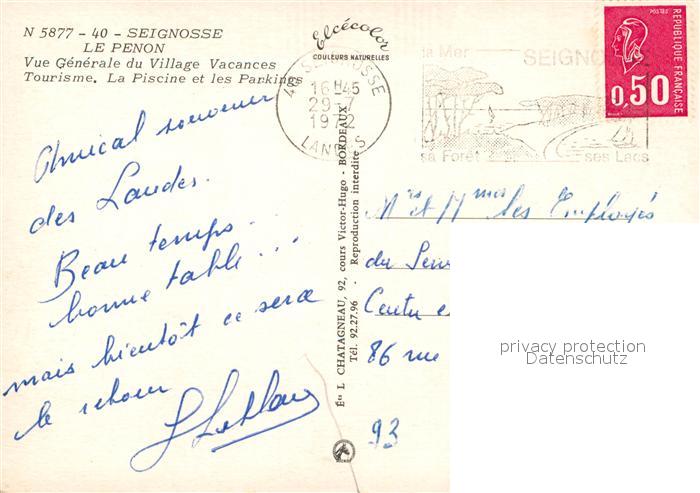 N 5877 - 40 - SEIGNOSSE
LE PENON
Vue Générale du Village Vacances
Tourisme. La Piscine et les Parkings
Amical souvenir
des Landes.
Beau temps...
bonne table...
mais bientôt ce sera
le retour
Elcécolor
COULEURS NATURELLES
40 SEIGNOSSE
16 H 45
29-7
1972
LANDES
la Mer
SEIGNOSSE
sa Forêt
ses Lacs
REPUBLIQUE FRANÇAISE
0,50
Éts L CHATAGNEAU, 92, cours Victor-Hugo - BORDEAUX
Tél. 92.27.96 - Reproduction interdite
Mrs et Mmes les Employés
du
86 rue
93
privacy protection
Datenschutz